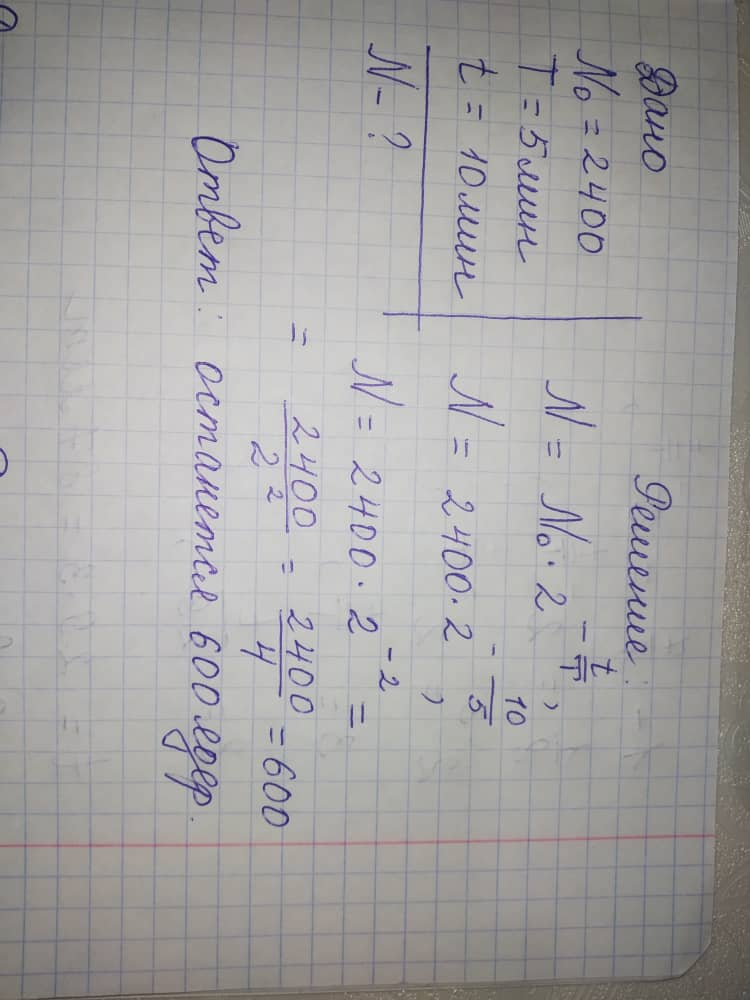 Дано
N₀ = 2400
T = 5 мин
t = 10 мин
N - ?
Решение:
N = N₀ · 2^(-t/T),
N = 2400 · 2^(-10/5),
N = 2400 · 2^(-2) =
= 2400/2^2 = 2400/4 = 600
Ответ: останется 600 ядер.